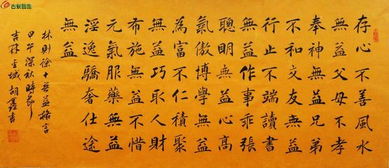 存心不善風水
無益父母不孝
奉神無益兄弟
不和交友無益
行止不端讀書
無益作事乖張
聰明無益心高
氣傲博學無益
為富不仁積聚
無益巧取人財
布施無益不惜
元氣服藥無益
淫逸驕奢仕途
無益
林則徐十無益格言
甲午深秋時節
吉林